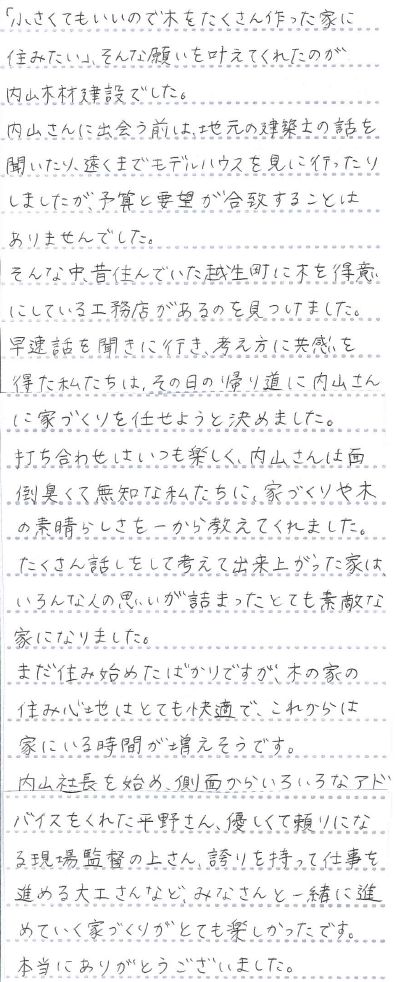 「小さくてもいいので木をたくさん作った家に
住みたい」、そんな願いを叶えてくれたのが
内山木材建設でした。
内山さんに出会う前は、地元の建築士の話を
聞いたり、遠くまでモデルハウスを見に行ったり
しましたが、予算と要望が合致することは
ありませんでした。
そんな中、昔住んでいた越生町に木を得意
にしている工務店があるのを見つけました。
早速話を聞きに行き、考え方に共感を
得た私たちは、その日の帰り道に内山さん
に家づくりを任せようと決めました。
打ち合わせはいつも楽しく、内山さんは面
倒臭くて無知な私たちに、家づくりや木
の素晴らしさを一から教えてくれました。
たくさん話しをして考えて出来上がった家は、
いろんな人の思いが詰まったとても素敵な
家になりました。
まだ住み始めたばかりですが、木の家の
住み心地はとても快適で、これからは
家にいる時間が増えそうです。
内山社長を始め、側面からいろいろなアド
バイスをくれた平野さん、優しくて頼りにな
る現場監督の上さん、誇りを持って仕事を
進める大工さんなど、みなさんと一緒に進
めていく家づくりがとても楽しかったです。
本当にありがとうございました。